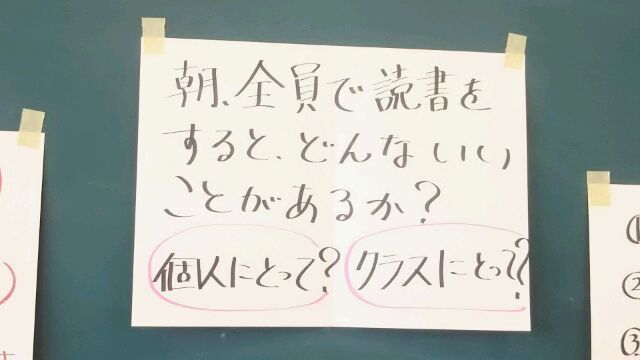 朝、全員で読書を
すると、どんないい
ことがあるか?
個人にとって? クラスにとって?
①
②
③